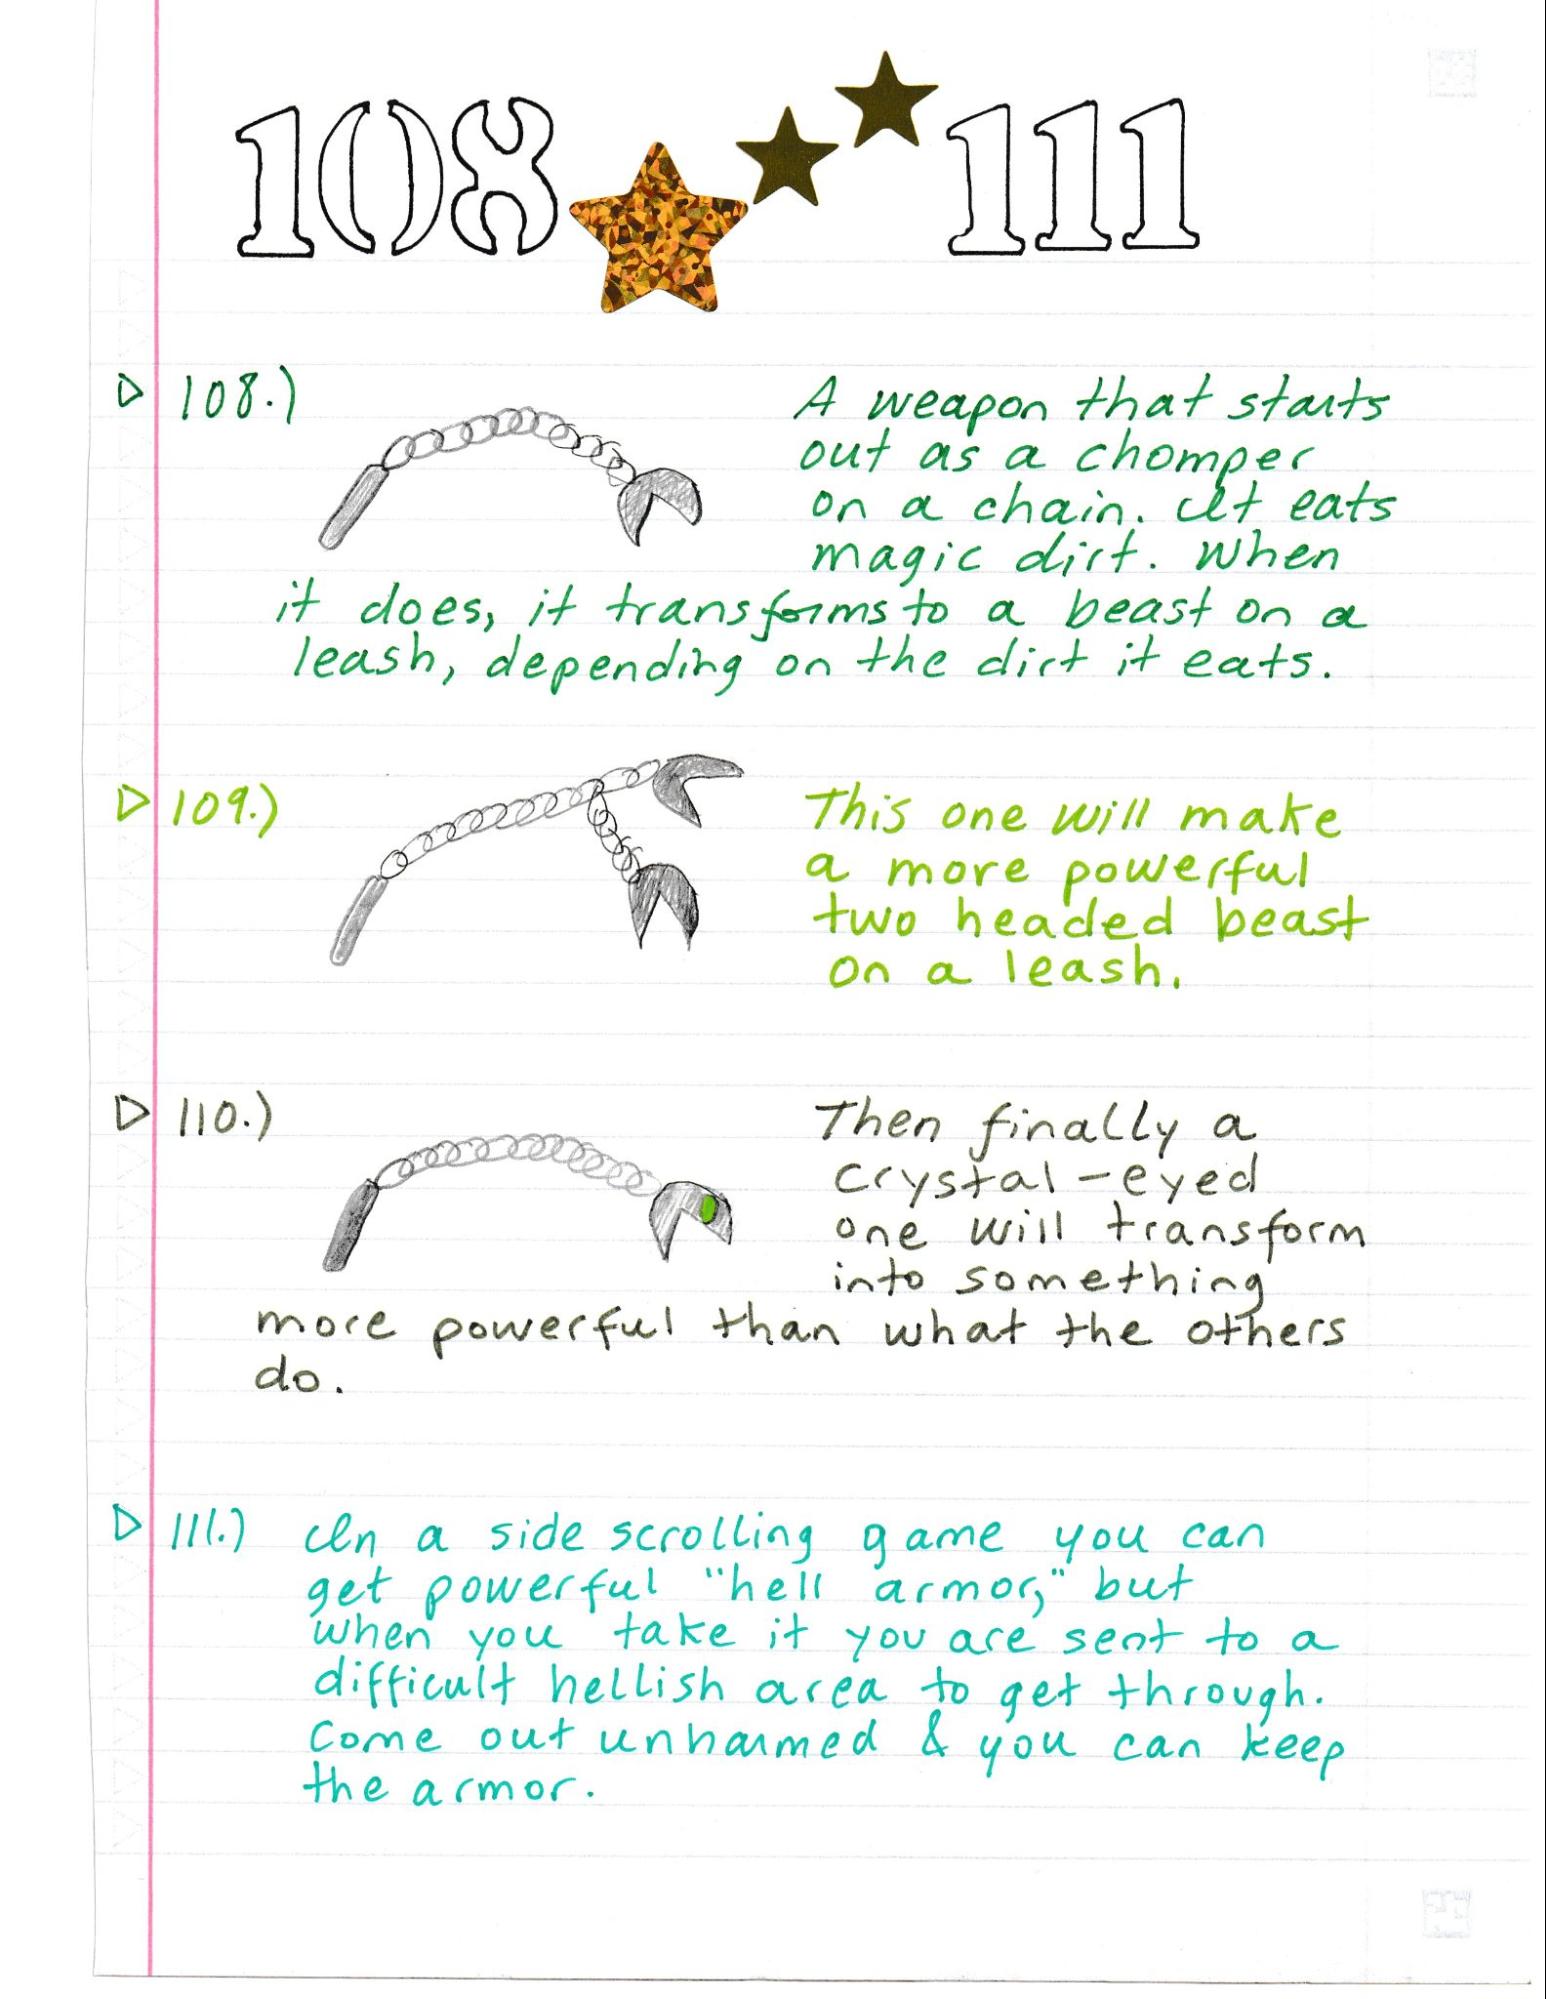 108 111
108.) A weapon that starts
out as a chomper
on a chain. It eats
magic dirt. When
it does, it transforms to a beast on a
leash, depending on the dirt it eats.
109.) This one will make
a more powerful
two headed beast
on a leash.
110.) Then finally a
crystal-eyed
one will transform
into something
more powerful than what the others
do.
111.) In a side scrolling game you can
get powerful "hell armor," but
when you take it you are sent to a
difficult hellish area to get through.
Come out unharmed & you can keep
the armor.